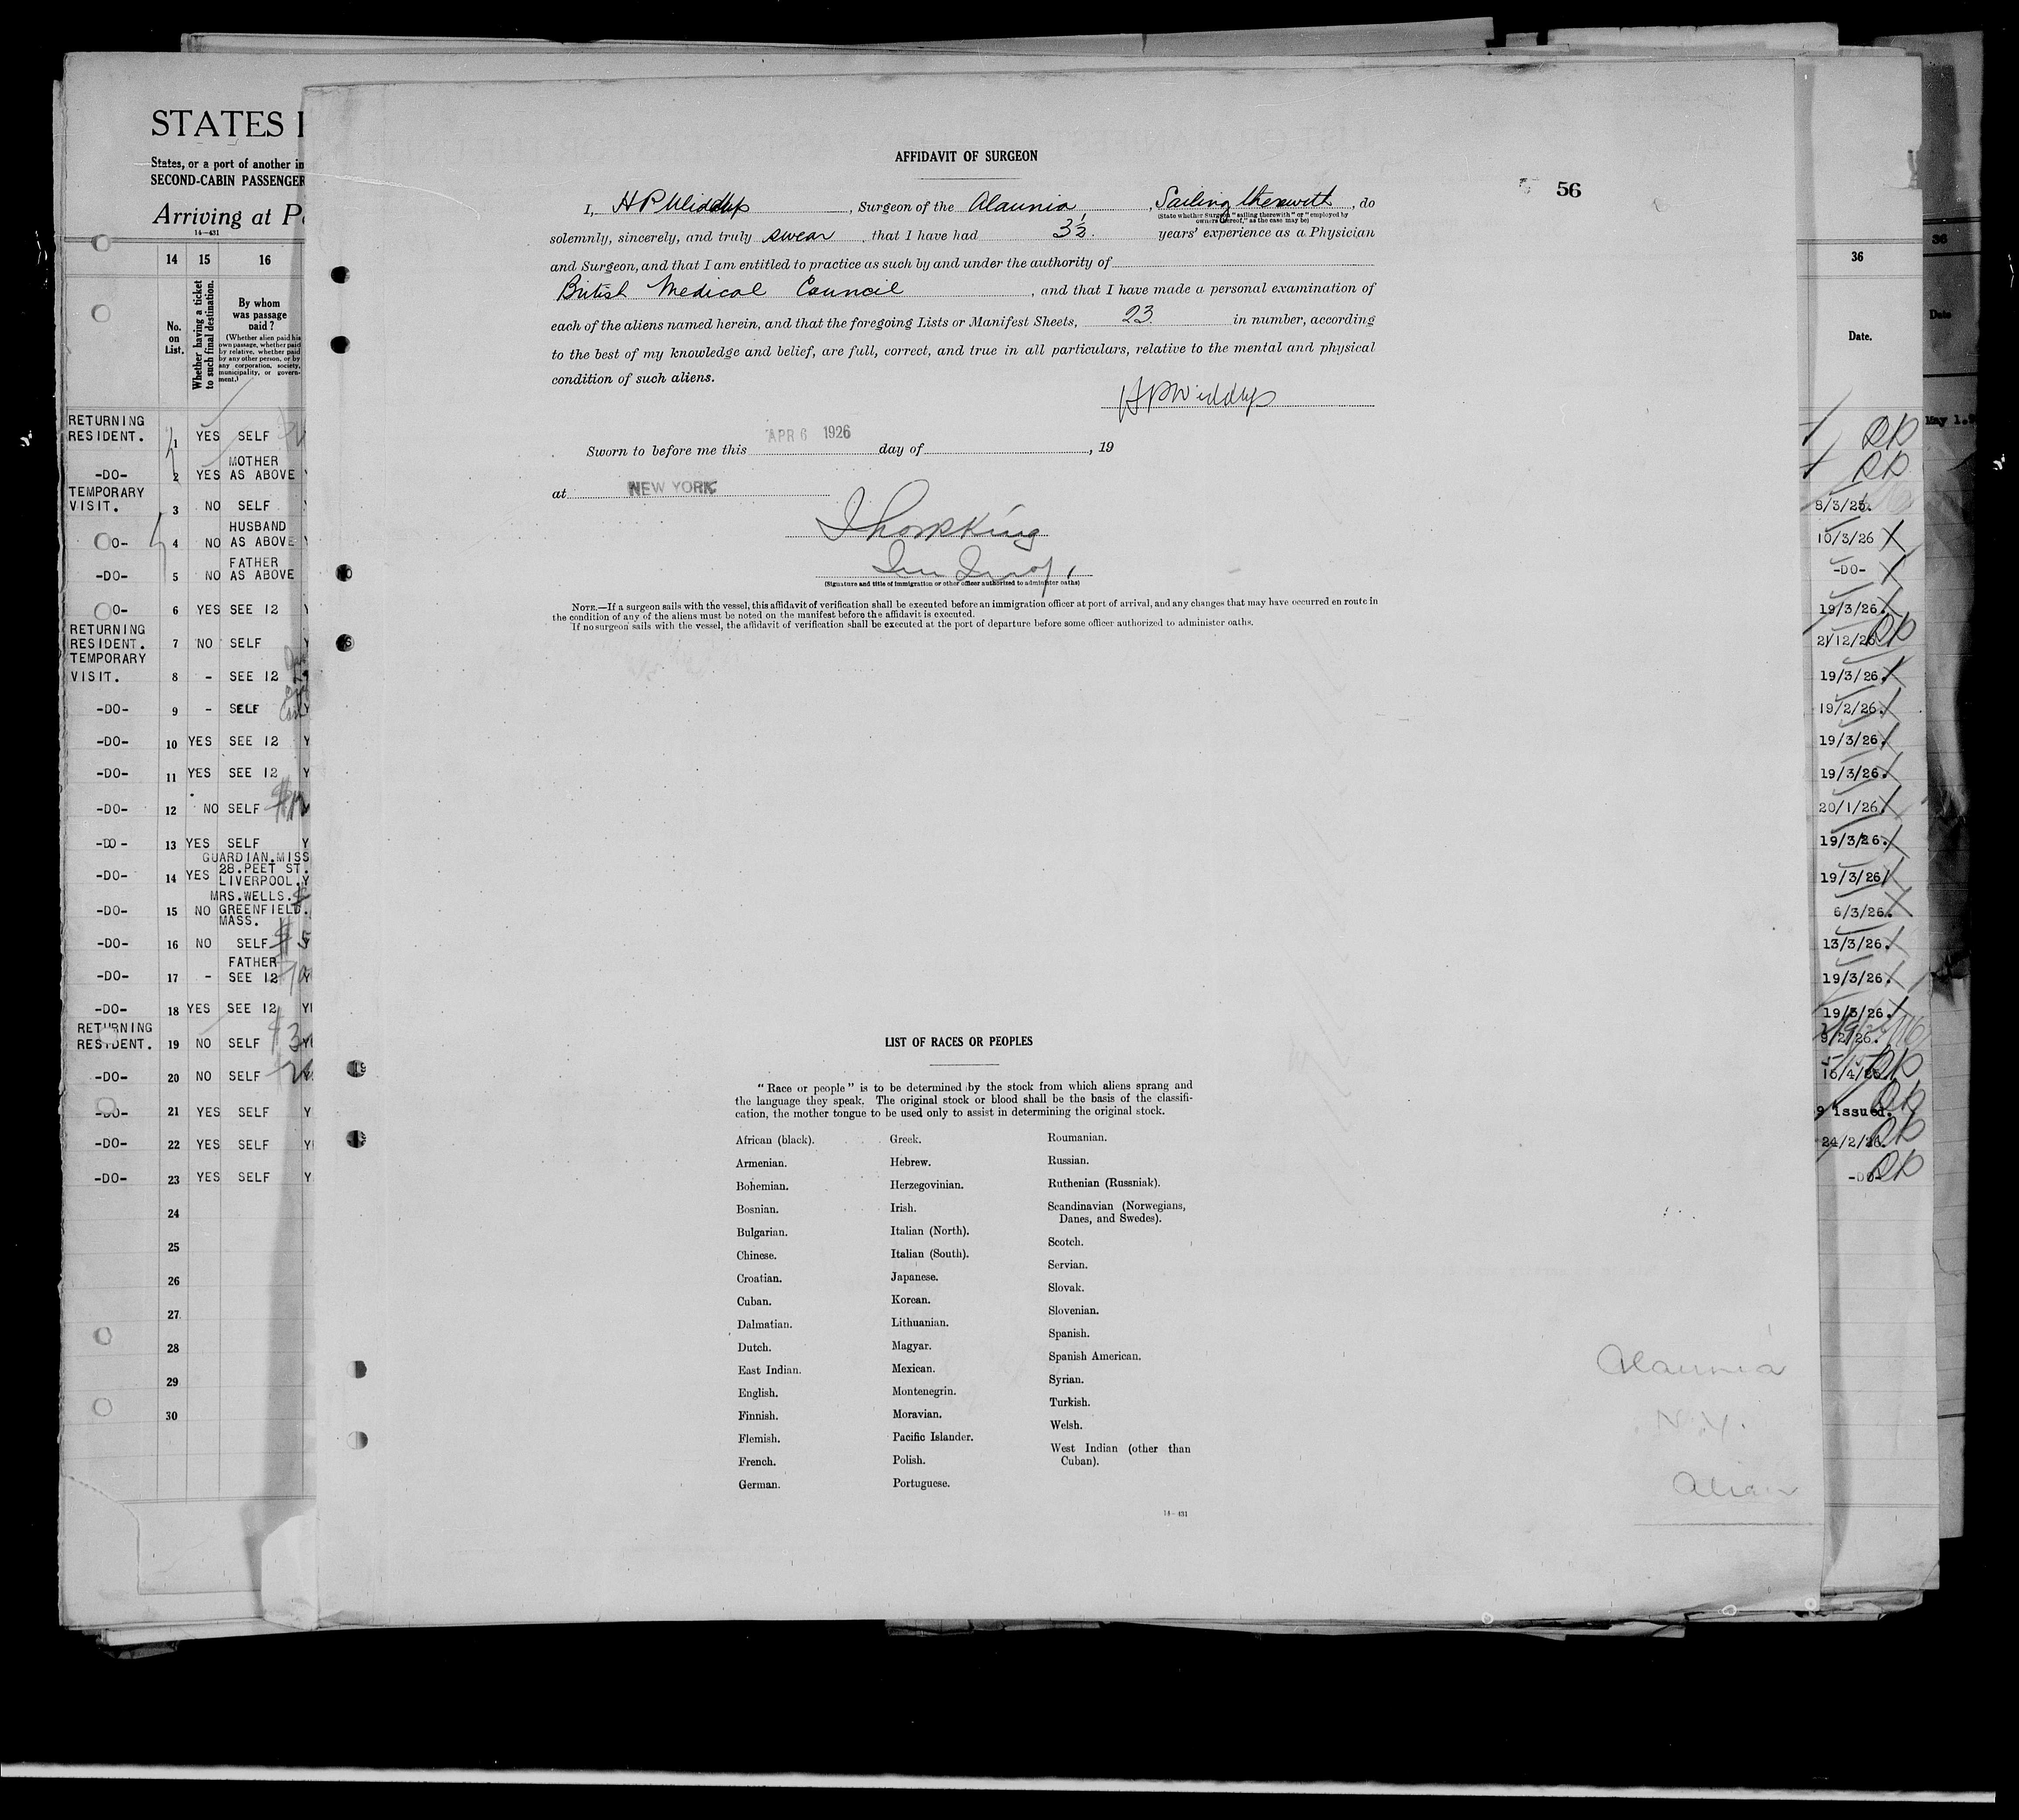 STATES I
States, or a port of another in
SECOND-CABIN PASSENGER
Arriving at P
14—431
14 15 16
No. on List.
Whether having a ticket to such final destination.
By whom was passage paid?
(Whether alien paid his own passage, whether paid by relative, whether paid by any other person, or by any corporation, society, municipality, or government.)
RETURNING
RESIDENT. 1 YES SELF
MOTHER
-DO- 2 YES AS ABOVE
TEMPORARY
VISIT. 3 NO SELF
HUSBAND
O- 4 NO AS ABOVE
FATHER
-DO- 5 NO AS ABOVE
O- 6 YES SEE 12
RETURNING
RESIDENT. 7 NO SELF
TEMPORARY
VISIT. 8 - SEE 12
-DO- 9 - SELF
-DO- 10 YES SEE 12 Y
-DO- 11 YES SEE 12 Y
-DO- 12 NO SELF
-DO- 13 YES SELF Y
GUARDIAN.MISS
-DO- 14 YES 28.PEET ST.
LIVERPOOL.Y
MRS.WELLS.
-DO- 15 NO GREENFIELD.
MASS.
-DO- 16 NO SELF
FATHER
-DO- 17 - SEE 12
-DO- 18 YES SEE 12 Y
RETURNING
RESIDENT. 19 NO SELF
-DO- 20 NO SELF
-DO- 21 YES SELF Y
-DO- 22 YES SELF Y
-DO- 23 YES SELF Y
24
25
26
27
28
29
30
AFFIDAVIT OF SURGEON
56
I, H P Widdup, Surgeon of the Alaunia, Sailing therewith, do
(State whether Surgeon "sailing therewith" or "employed by owners thereof," as the case may be)
solemnly, sincerely, and truly swear, that I have had 3½ years' experience as a Physician
and Surgeon, and that I am entitled to practice as such by and under the authority of
British Medical Council, and that I have made a personal examination of
each of the aliens named herein, and that the foregoing Lists or Manifest Sheets, 23 in number, according
to the best of my knowledge and belief, are full, correct, and true in all particulars, relative to the mental and physical
condition of such aliens.
H P Widdup
Sworn to before me this APR 6 1926 day of , 19
at NEW YORK
(Signature and title of immigration or other officer authorized to administer oaths)
NOTE.—If a surgeon sails with the vessel, this affidavit of verification shall be executed before an immigration officer at port of arrival, and any changes that may have occurred en route in
the condition of any of the aliens must be noted on the manifest before the affidavit is executed.
If no surgeon sails with the vessel, the affidavit of verification shall be executed at the port of departure before some officer authorized to administer oaths.
LIST OF RACES OR PEOPLES
"Race or people" is to be determined by the stock from which aliens sprang and
the language they speak. The original stock or blood shall be the basis of the classifi-
cation, the mother tongue to be used only to assist in determining the original stock.
African (black).
Armenian.
Bohemian.
Bosnian.
Bulgarian.
Chinese.
Croatian.
Cuban.
Dalmatian.
Dutch.
East Indian.
English.
Finnish.
Flemish.
French.
German.
Greek.
Hebrew.
Herzegovinian.
Irish.
Italian (North).
Italian (South).
Japanese.
Korean.
Lithuanian.
Magyar.
Mexican.
Montenegrin.
Moravian.
Pacific Islander.
Polish.
Portuguese.
Roumanian.
Russian.
Ruthenian (Russniak).
Scandinavian (Norwegians,
Danes, and Swedes).
Scotch.
Servian.
Slovak.
Slovenian.
Spanish.
Spanish American.
Syrian.
Turkish.
Welsh.
West Indian (other than
Cuban).
14—431
Alaunia
N.Y.
Alien
36
Date.
8/3/25.
10/3/26
-DO-
19/3/26
21/12/25
19/3/26.
19/2/26.
19/3/26.
19/3/26.
20/1/26.
19/3/26.
19/3/26
6/3/26.
13/3/26.
19/3/26.
19/3/26.
9/2/26.
16/4/25.
9 issued.
24/2/26.
-DO-
36
Date
May 1.